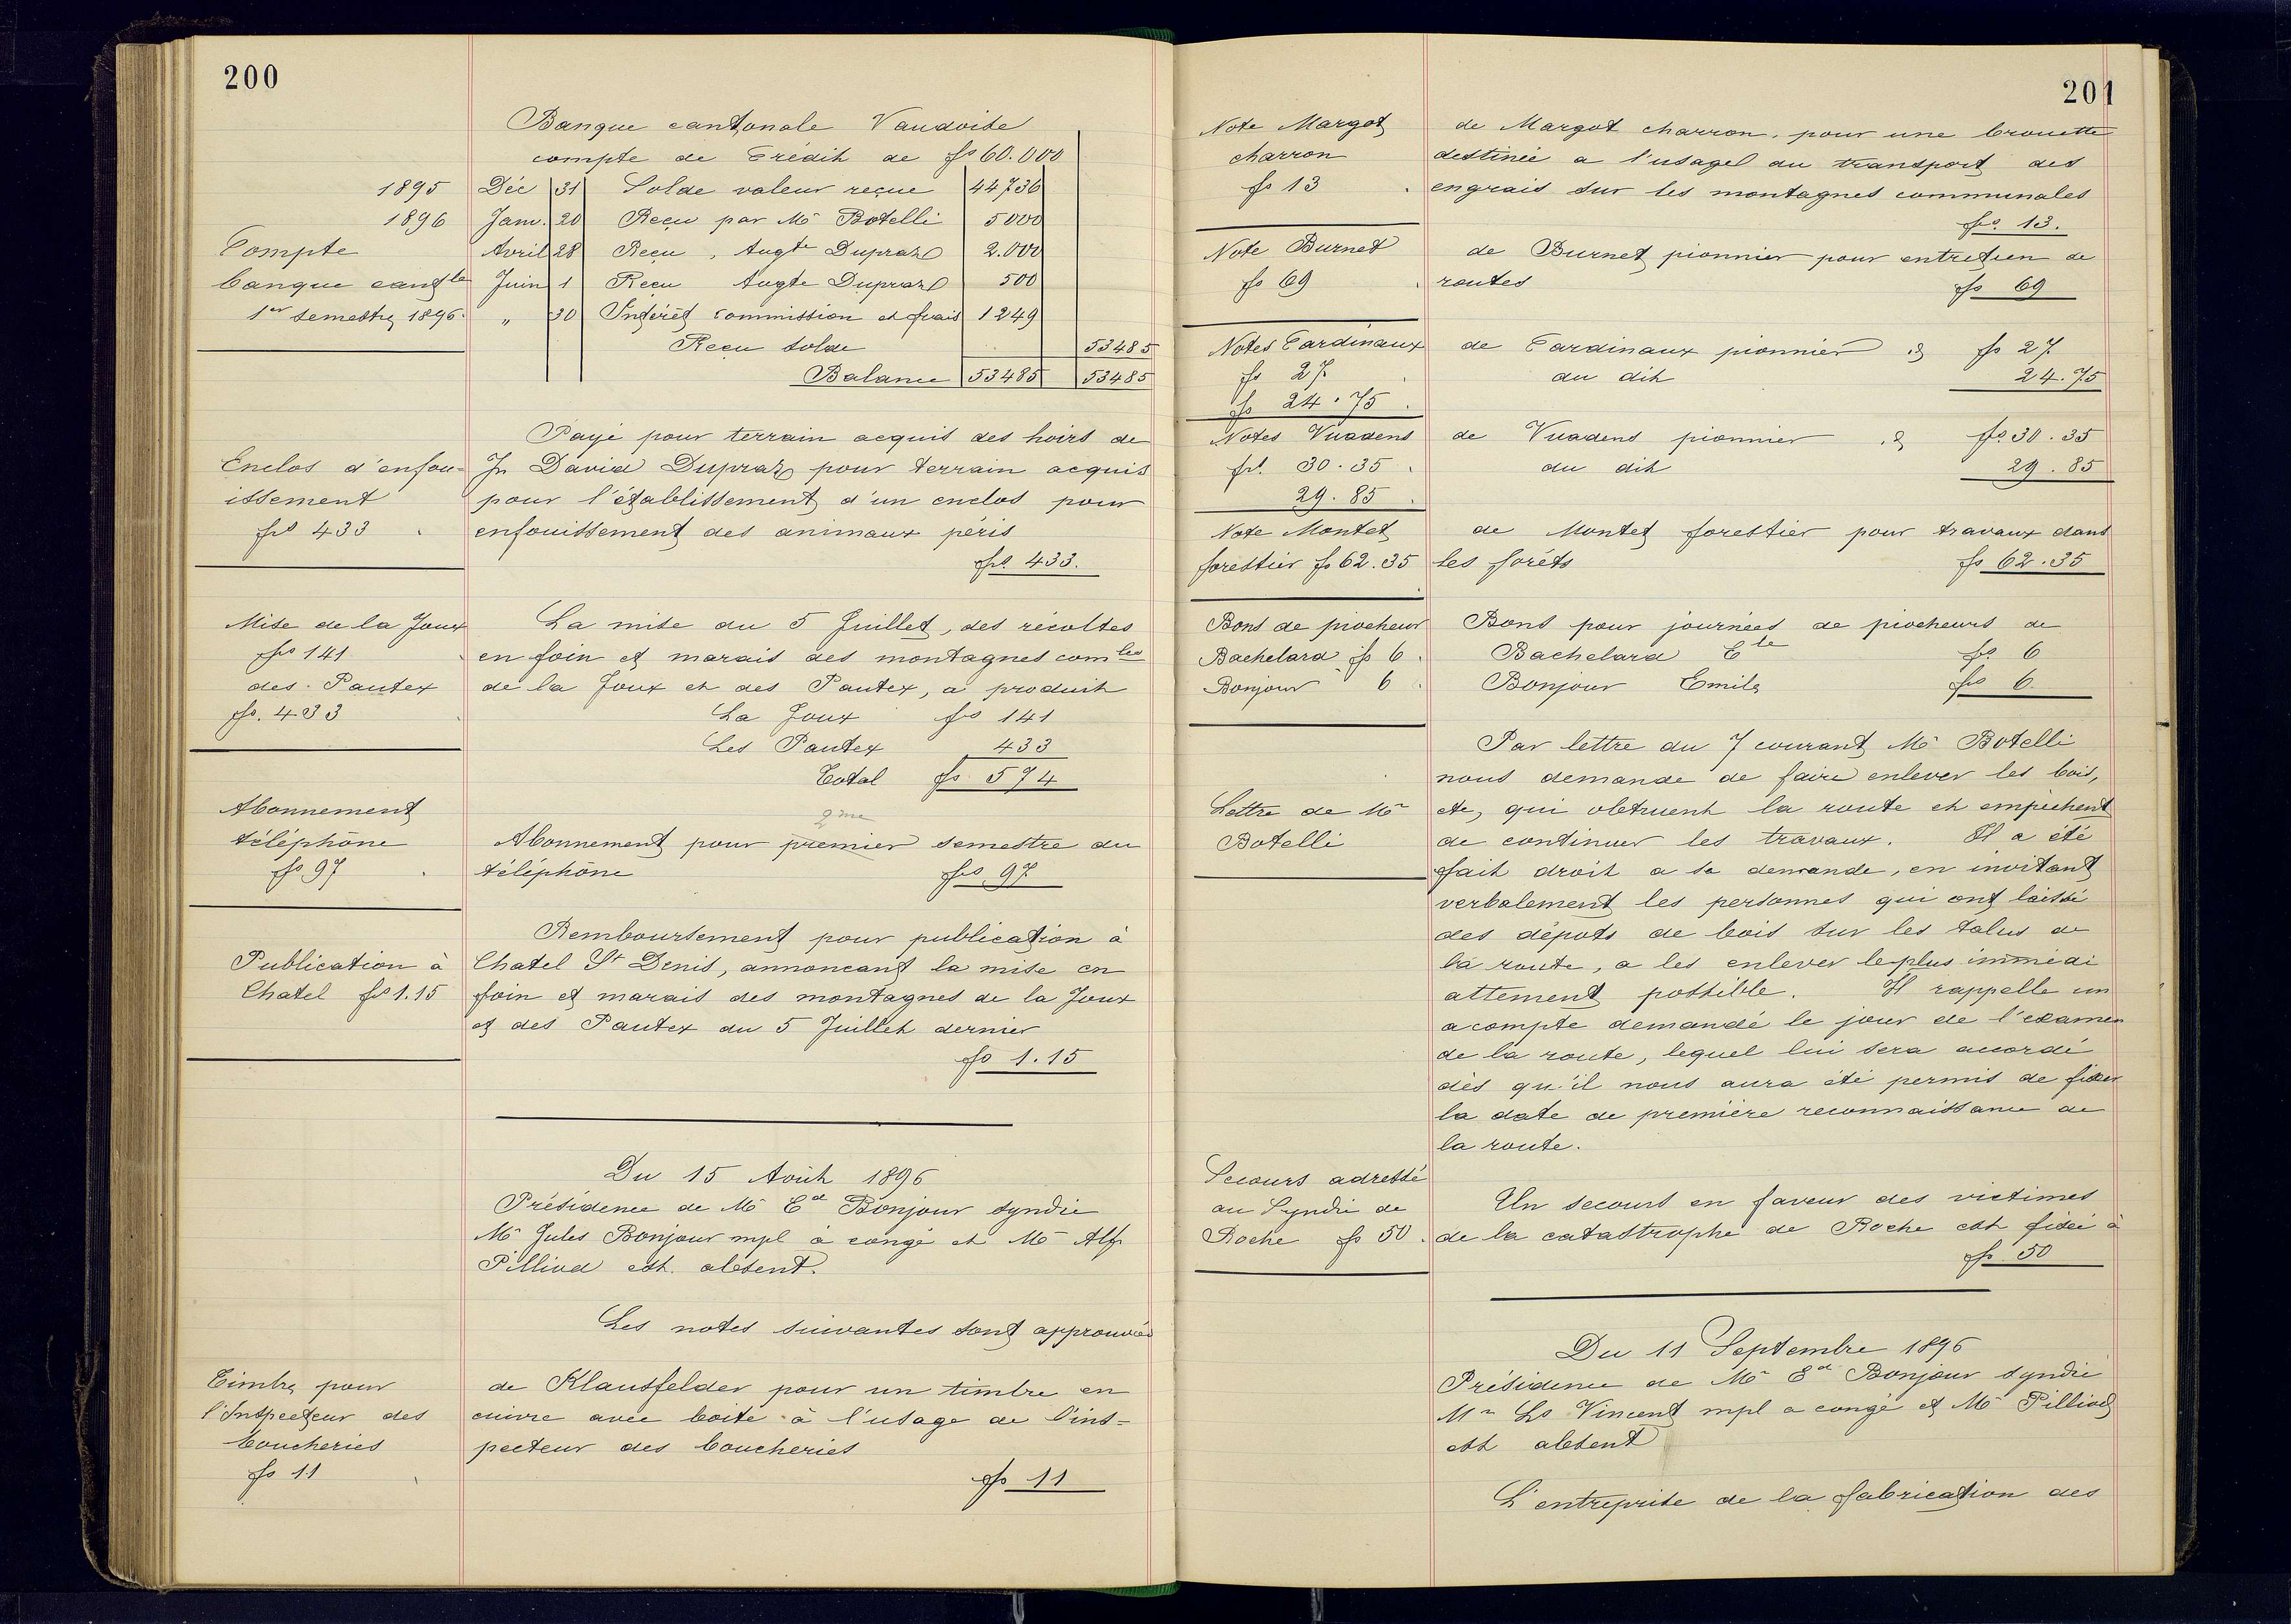 200
Banque cantonale Vaudoise
compte de Crédit de fs 60.000
1895 Déc 31 Solde valeur reçue 44736
1896 Janv. 20 Reçu par Mr Botelli 5000
Compte Avril 28 Reçu, Augte Dupraz 2.000
banque cantle Juin 1 Reçu Augte Dupraz 500
1er semestre 1896. " 30 Intérêt commission et frais 1249
Reçu solde 53485
Balance 53485 53485
Payé pour terrain acquis des hoirs de
Enclos d'enfou= Jn David Dupraz pour terrain acquis
issement pour l'établissement d'un enclos pour
frs 433 enfouissement des animaux péris
frs. 433.
Mise de la Joux La mise du 5 Juillet, des récoltes
frs 141 en foin et marais des montagnes comles
des Pautex de la Joux et des Pautex, a produit
fs. 433 La Joux fs 141
Les Pautex 433
Total fs 574
Abonnement 2me
téléphone Abonnement pour premier semestre du
fs 97 téléphone frs. 97
Remboursement pour publication à
Publication à Chatel St Denis, annonçant la mise en
Chatel frs 1.15 foin et marais des montagnes de la Joux
et des Pautex du 5 Juillet dernier
fs 1.15
Du 15 Août 1896
Présidence de Mr Ed Bonjour syndic
Mr Jules Bonjour mpl a congé et Mr Alf.
Pilliod est absent.
Les notes suivantes sont approuvées
Timbre pour de Klausfelder pour un timbre en
l'Inspecteur des cuivre avec boite à l'usage de l'ins=
boucheries pecteur des boucheries
fs 11 fs 11
201
Note Margot de Margot charron, pour une brouette
charron destinée a l'usage du transport des
fs 13 engrais sur les montagnes communales
frs. 13.
Note Burnet de Burnet pionnier pour entretien de
fs 69 routes fs 69
Notes Cardinaux de Cardinaux pionnier id fs 27
fs 27 du dit 24.75
fs 24.75
Notes Vuadens de Vuadens pionnier id fs 30.35
frs. 30.35 du dit 29.85
29.85
Note Montet de Montet forestier pour travaux dans
forestier fs 62.35 les forêts fs 62.35
Bons de piocheur Bons pour journées de piocheurs de
Bachelard fs 6 Bachelard Cle fs 6
Bonjour 6 Bonjour Emile frs 6.
Par lettre du 7 courant Mr Botelli
nous demande de faire enlever les bois,
Lettre de Mr etc, qui obtruent la route et empêchent
Botelli de continuer les travaux. Il a été
fait droit a sa demande, en invitant
verbalement les personnes qui ont laissé
des dépots de bois sur les talus de
la route, a les enlever le plus immédi
attement possible. Il rappelle un
acompte demandé le jour de l'examen
de la route, lequel lui sera accordé
dès qu'il nous aura été permis de fixer
la date de première reconnaissance de
la route.
Secours adressé
au Syndic de Un secours en faveur des victimes
Roche fs 50. de la catastrophe de Roche est fixée à
fs. 50
Du 11 Septembre 1896
Présidence de Mr Ed Bonjour syndic
Mr Ls Vincent mpl a congé et Mr Pilliod
est absent
L'entreprise de la fabrication des